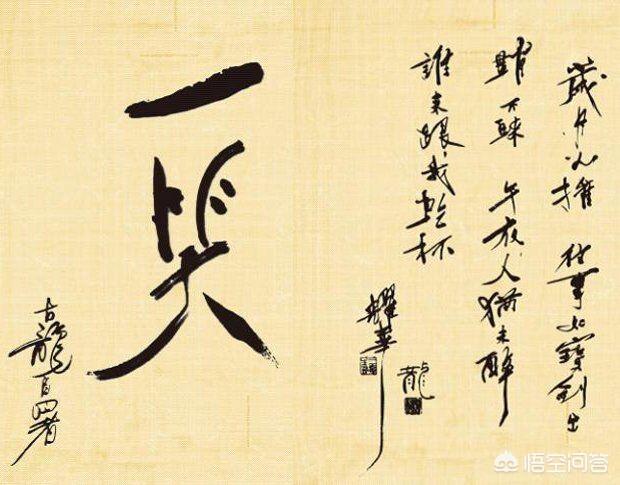 歲月 往事如寶劍出
鞘 午夜人猶未醉
誰來跟我乾杯
耀華
龍
一笑
古龍自署
悟空问答